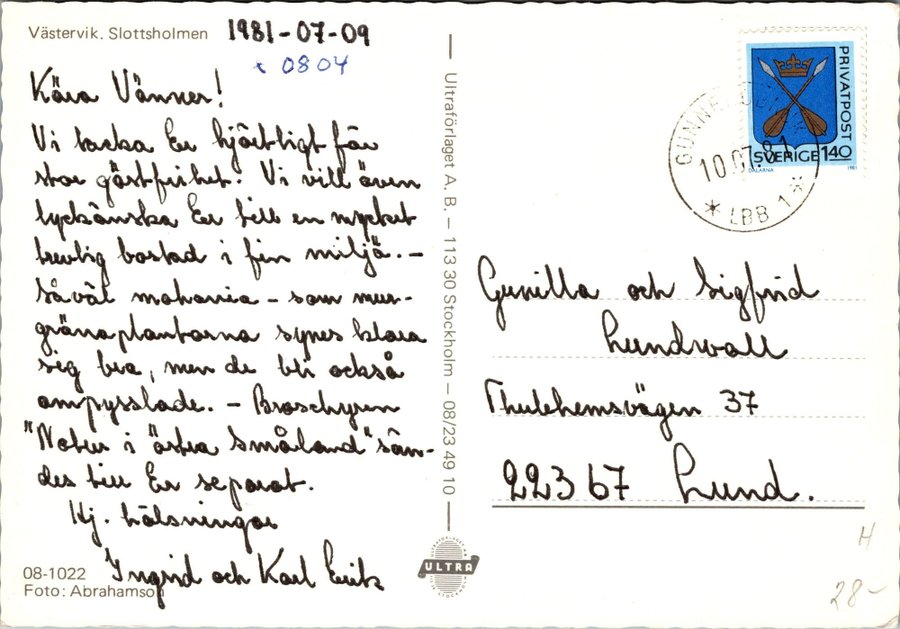 Västervik. Slottsholmen
1981-07-09
0804
Kära Vänner!
Vi tacka Er hjärtligt för
stor gästfrihet. Vi vill även
lyckönska Er till en mycket
trevlig bostad i fin miljö. –
Såväl mahonia – som mur-
grönaplantorna synes klara
sig bra, men de blir också
ompysslade. – Broschyren
"Natur i östra Småland" sän-
des till Er separat.
Hj. hälsningar
Ingrid och Karl Erik
08-1022
Foto: Abrahamson
Ultraförlaget A.B. – 113 30 Stockholm – 08/23 49 10
ULTRA
PRIVATPOST
SVERIGE 140
DALARNA
1981
10.07.81
* LBB 1 *
Gunilla och Sigfrid
Lundwall
Thulehemsvägen 37
223 67 Lund.
H
28-